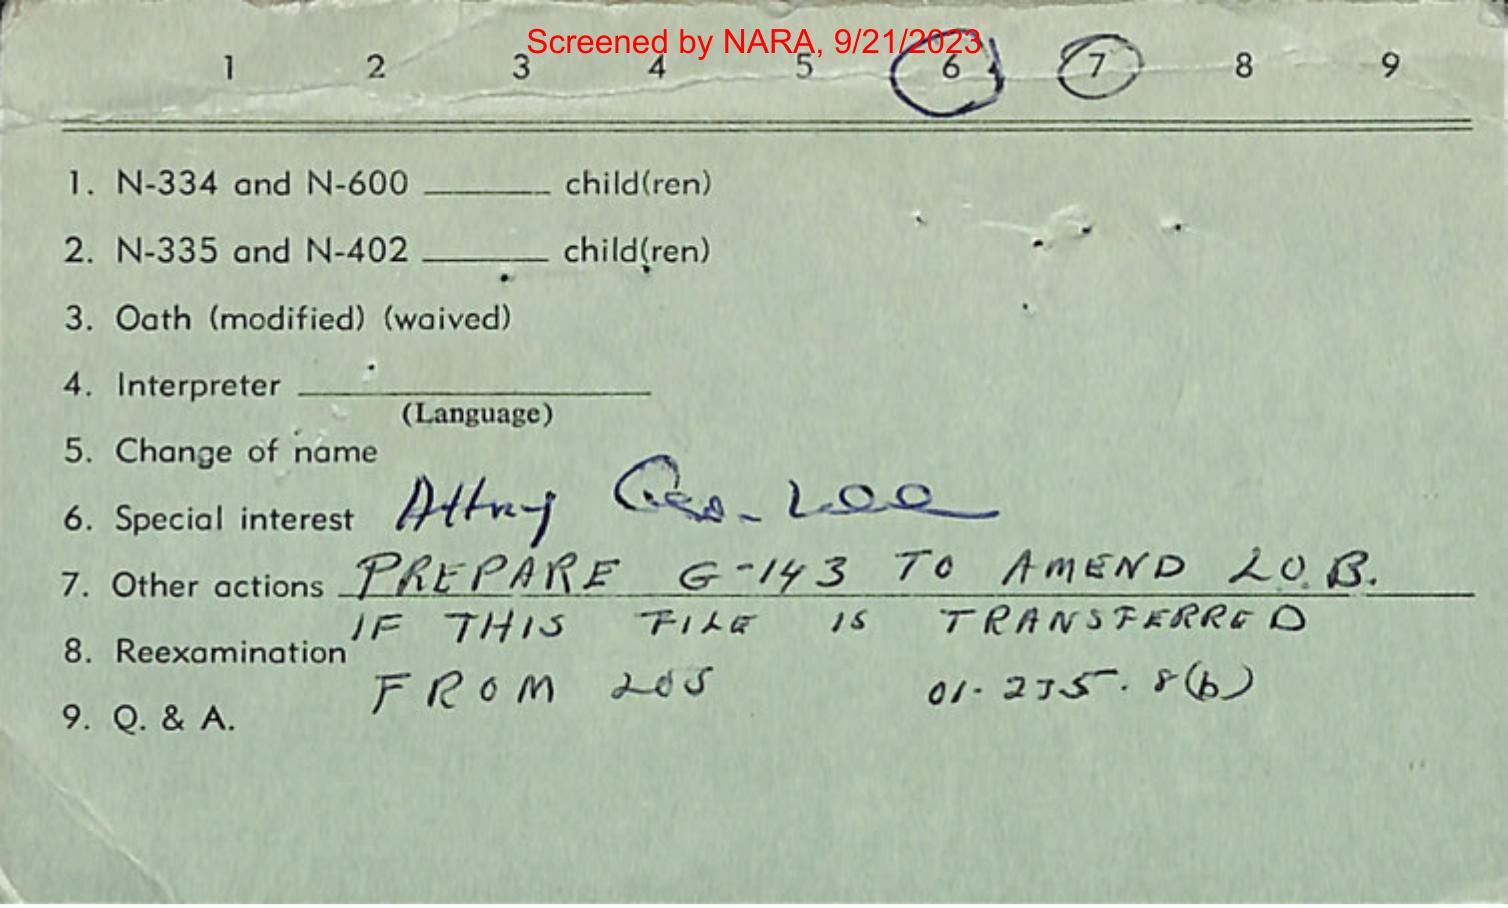 Screened by NARA, 9/21/2023
1 2 3 4 5 6 7 8 9
1. N-334 and N-600 ______ child(ren)
2. N-335 and N-402 ______ child(ren)
3. Oath (modified) (waived)
4. Interpreter ______
(Language)
5. Change of name
6. Special interest Attny Geo. Lee
7. Other actions PREPARE G-143 TO AMEND
IF THIS FILE IS TRANSFERRED
8. Reexamination
FROM LOS 01-235.8(b)
9. Q. & A.